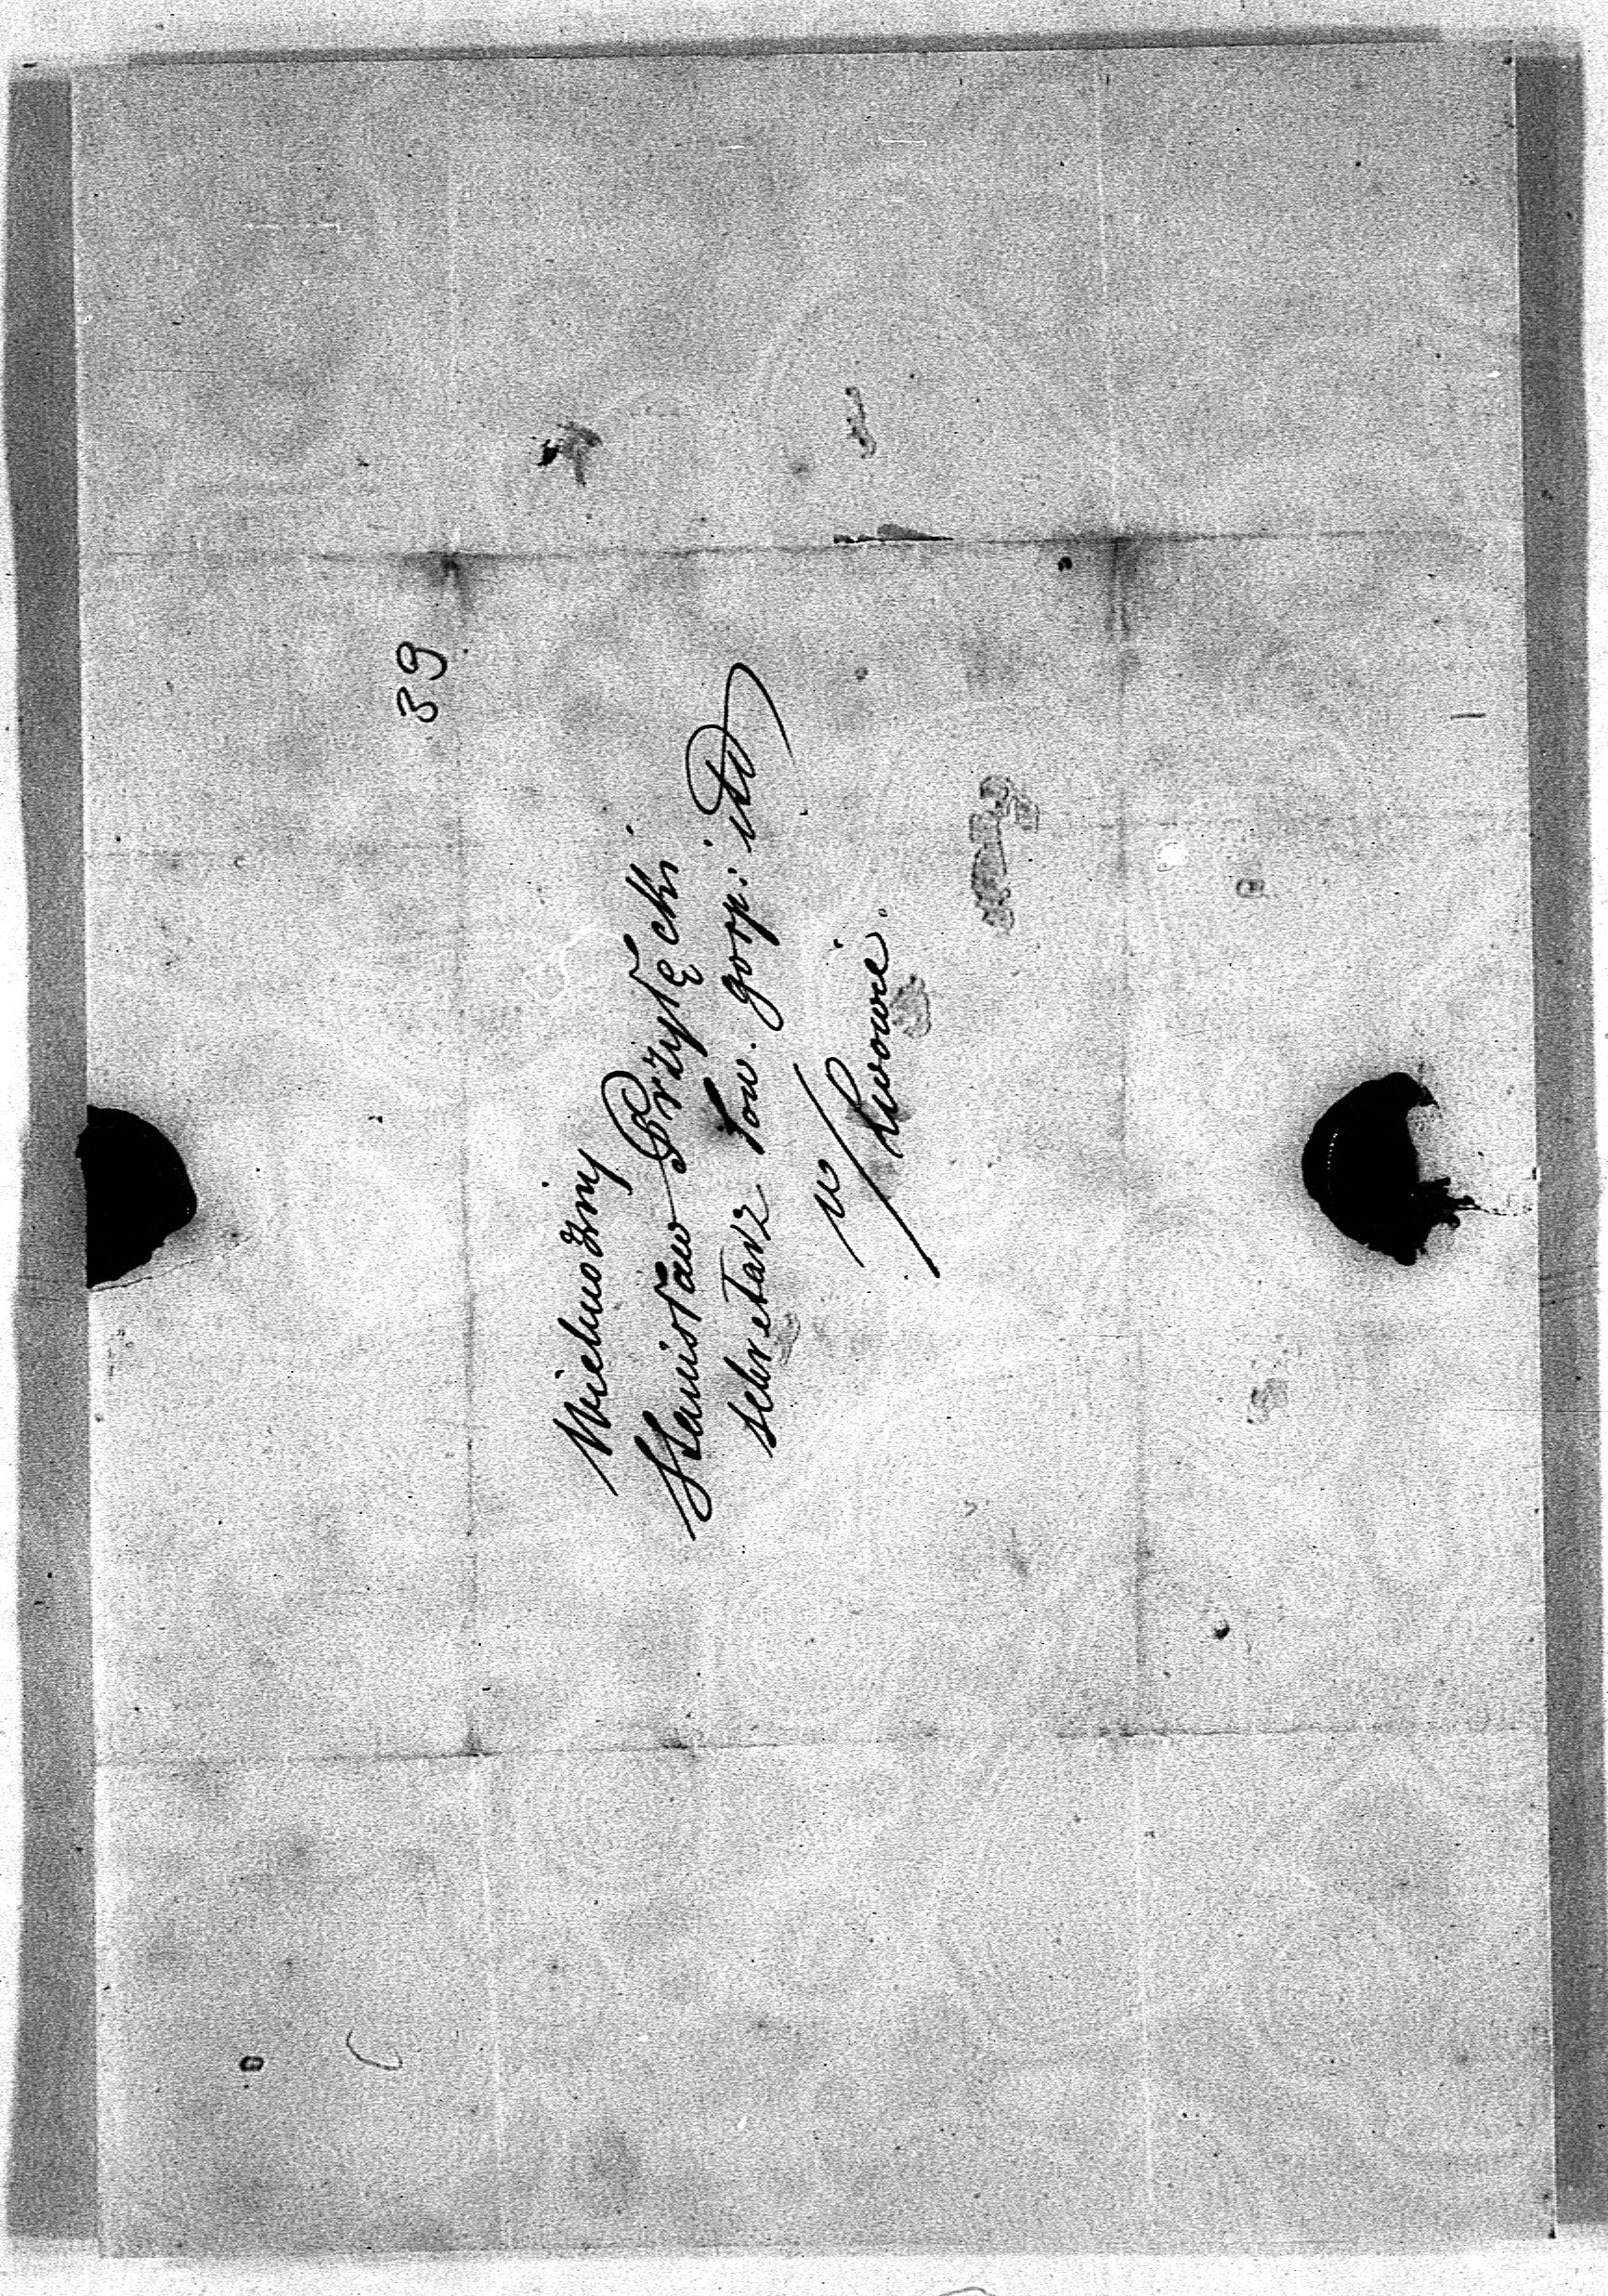 39
Wielmożny
Stanisław Przyłęcki.
sekretarz Tow. gosp: itd
w/ Lwowie.